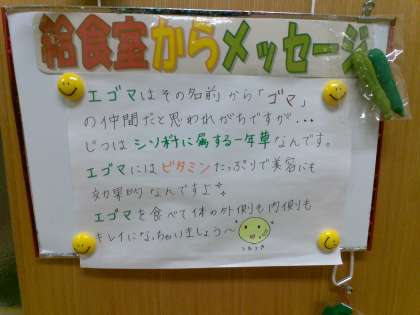 給食室からメッセージ
エゴマはその名前から「ゴマ」
の仲間だと思われがちですが・・・
じつはシソ科に属する一年草なんです。
エゴマにはビタミンたっぷりで美容にも
効果的なんですよ
エゴマを食べて体の外側も内側も
キレイになっちゃいましょう～